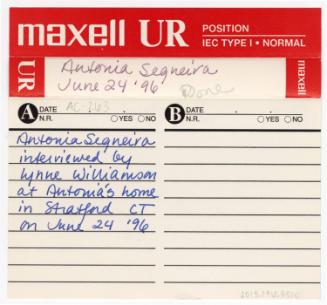 maxell UR POSITION
IEC TYPE I • NORMAL
UR
Antonia Sequeira
June 24 '96
Done
maxell
A DATE AC-263
N.R. YES NO
B DATE
N.R. YES NO
Antonia Sequeira
interviewed by
Lynne Williamson
at Antonia's home
in Stratford CT
on June 24 '96